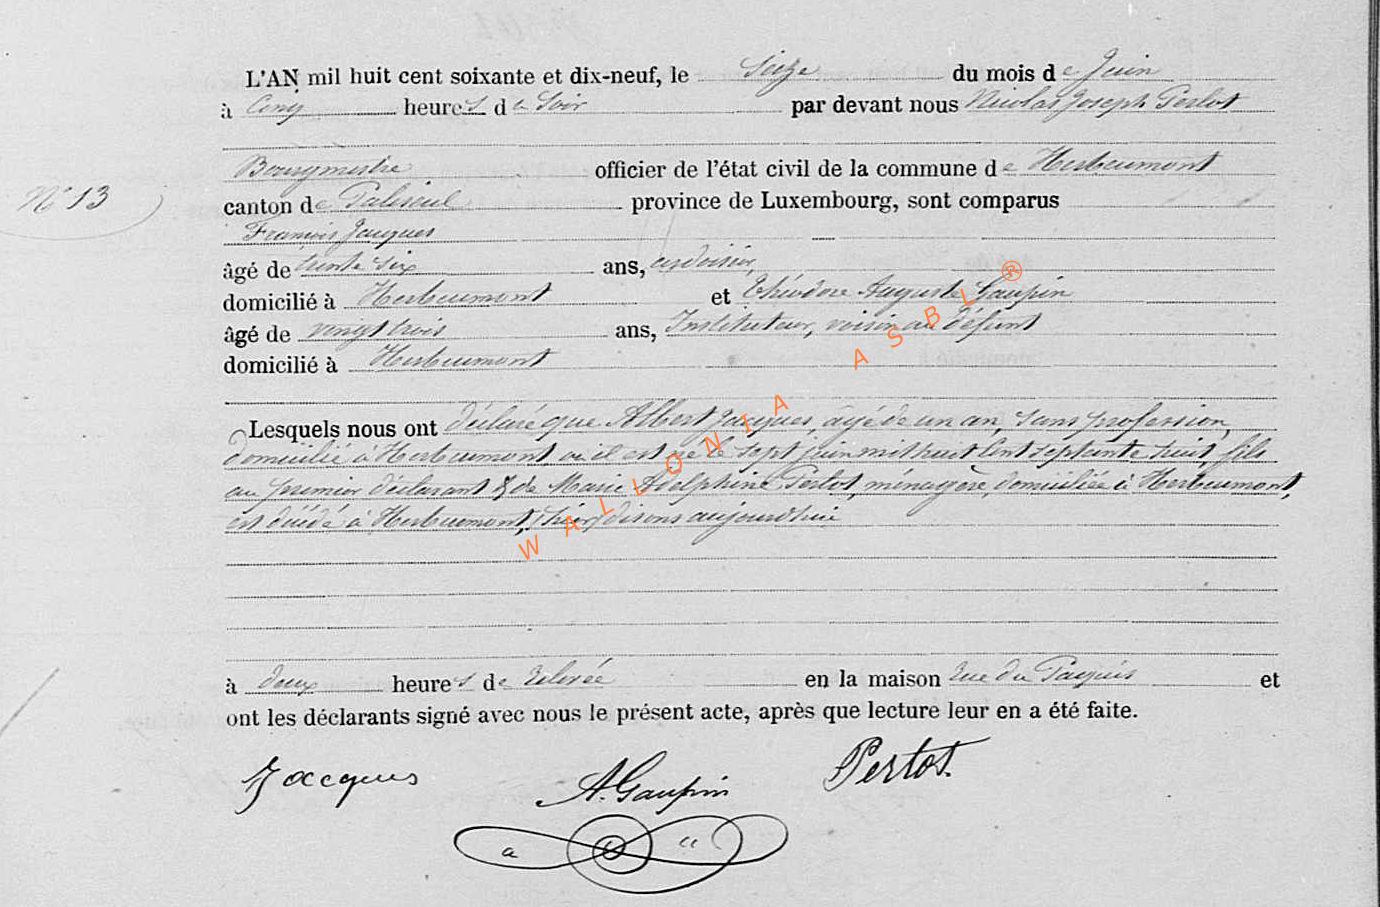 L'AN mil huit cent soixante et dix-neuf, le Seize du mois de Juin
à Cinq heures de Soir par devant nous Nicolas Joseph Perlot
Bourgmestre officier de l'état civil de la commune de Herbeumont
N° 13
canton de Paliseul province de Luxembourg, sont comparus
François Jacques
âgé de trente six ans, ardoisier,
domicilié à Herbeumont et Théodore Auguste Gaupin
âgé de vingt trois ans, Instituteur, voisin au défunt
domicilié à Herbeumont
Lesquels nous ont déclaré que Albert Jacques, âgé de un an, sans profession,
domicilié à Herbeumont où il est né le sept juin mil huit cent septante huit, fils
au premier déclarant & de Marie Adelphine Perlot, ménagère, domiciliée à Herbeumont,
est décédé à Herbeumont, (hier) disons aujourd'hui
à deux heures de relevée en la maison rue du Paquis et
ont les déclarants signé avec nous le présent acte, après que lecture leur en a été faite.
Jacques A. Gaupin Perlot.
WALLONIA ASBL ®